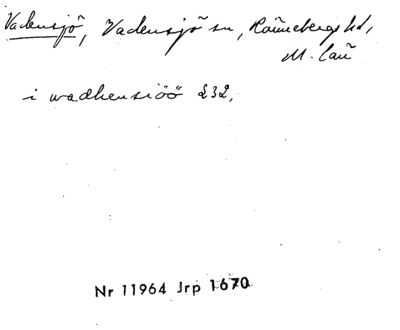 Vadensjö, Vadensjö sn, Rönnebergs hd,
M. län
i wadhensiöö 232,
Nr 11964 Jrp 1670